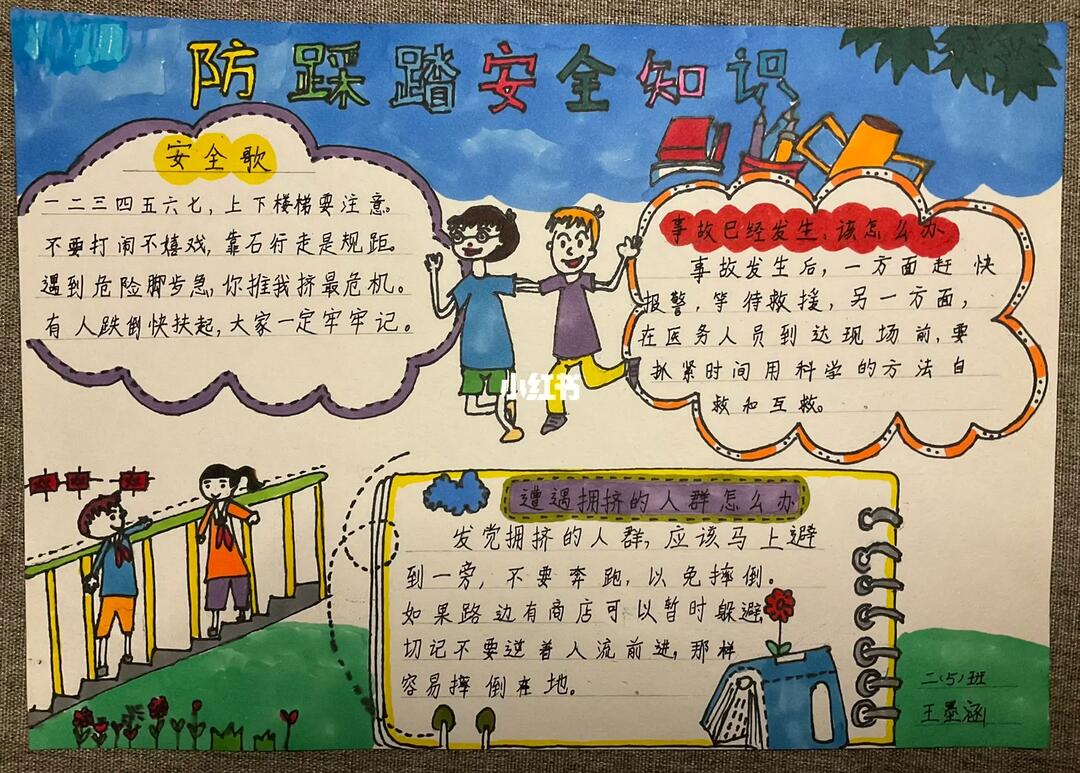 防踩踏安全知识
安全歌
一二三四五六七，上下楼梯要注意。
不要打闹不嬉戏，靠右行走是规距。
遇到危险脚步急，你推我挤最危机。
有人跌倒快扶起，大家一定牢牢记。
小红书
事故已经发生，该怎么办
事故发生后，一方面赶快
报警，等待救援，另一方面，
在医务人员到达现场前，要
抓紧时间用科学的方法自
救和互救。
遭遇拥挤的人群怎么办
发觉拥挤的人群，应该马上避
到一旁，不要奔跑，以免摔倒。
如果路边有商店可以暂时躲避，
切记不要逆着人流前进，那样
容易摔倒在地。
二（5）班
王墨涵